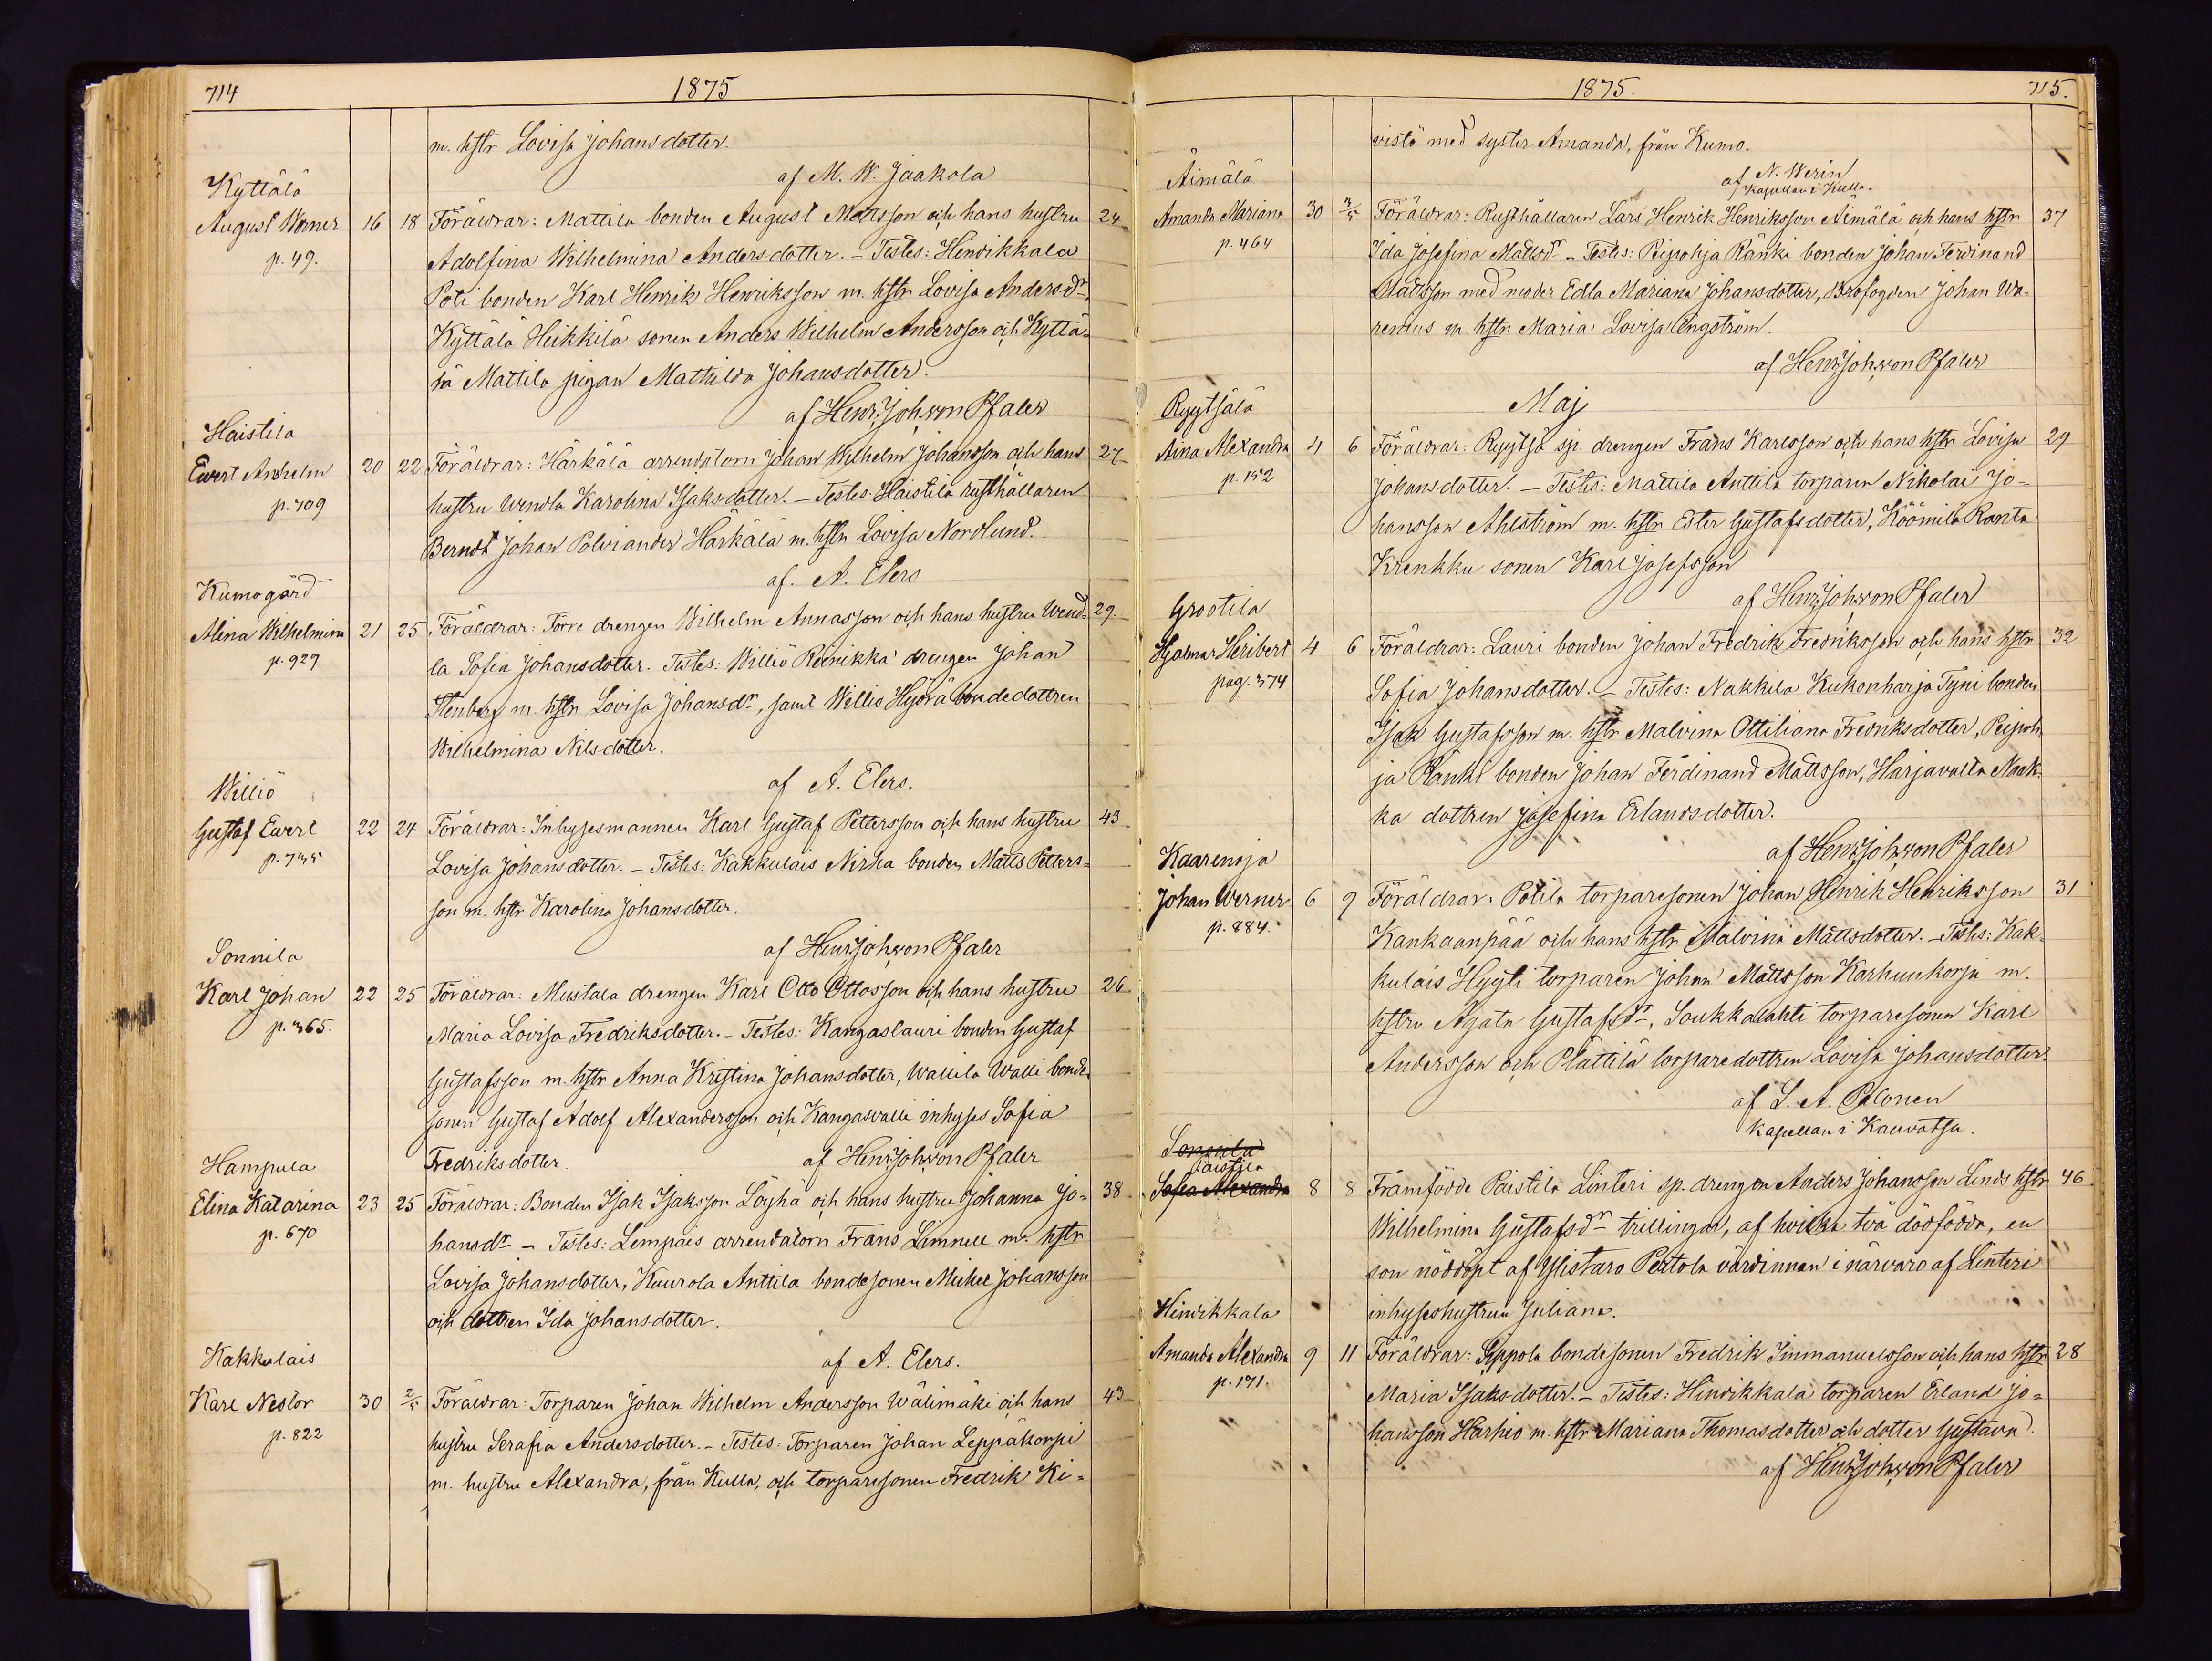 714
1875
m. hstr Lovisa Johansdotter.
af M. W. Jaakola
Kyttälä
August Werner 16 18 Föräldrar: Mattila bonden August Mattsson och hans hustru 24
p. 49. Adolfina Wilhelmina Andersdotter. – Testes: Hindikkala
Poti bonden Karl Henrik Henriksson m. hstr Lovisa Andersdr,
Kyttälä Heikkilä sonen Anders Wilhelm Andersson och Kyttä-
lä Mattila pigan Mathilda Johansdotter.
af Henr. Joh. von Pfaler
Haistila
Ewert Anshelm 20 22 Föräldrar: Härkälä arrendatorn Johan Wilhelm Johansson och hans 27
p. 709 hustru Wendla Karolina Isaksdotter. – Testes: Haistila rusthållaren
Berndt Johan Polviander Härkälä m. hstr Lovisa Nordlund.
af. A. Elers
Kumogård
Alina Wilhelmina 21 25 Föräldrar: Torre drengen Wilhelm Annasson och hans hustru Wend- 29
p. 929 la Sofia Johansdotter. Testes: Williö Reinikka drengen Johan
Stenberg m. hstr Lovisa Johansdr, samt Williö Hyörä bondedottren
Wilhelmina Nilsdotter.
af A. Elers.
Williö
Gustaf Ewert 22 24 Föräldrar: Inhysesmannen Karl Gustaf Pettersson och hans hustru 43
p. 735 Lovisa Johansdotter. – Testes: Kakkulais Nirha bonden Matts Petters-
son m. hstr Karolina Johansdotter.
af Henr. Joh. von Pfaler
Sonnila
Karl Johan 22 25 Föräldrar: Mustala drengen Karl Otto Ottosson och hans hustru 26
p. 365. Maria Lovisa Fredriksdotter. – Testes: Kangaslauri bonden Gustaf
Gustafsson m. hstr Anna Kristina Johansdotter, Wallila Walli bonde
sonen Gustaf Adolf Alexandersson och Kangasvalli inhyses Sofia
Fredriksdotter. af Henr. Joh. von Pfaler
Hampula
Elina Katarina 23 25 Föräldrar: Bonden Isak Isaksson Löyhä och hans hustru Johanna Jo- 38
p. 670 hansdr – Testes: Lempais arrendatorn Frans Limnell m. hstr
Lovisa Johansdotter, Kuurola Anttila bondesonen Mickel Johansson
och dottren Ida Johansdotter.
af A. Elers.
Kakkulais
Karl Nestor 30 2/5 Föräldrar: Torparen Johan Wilhelm Andersson Wälimäki och hans 43
p. 822 hustru Serafia Andersdotter. – Testes: Torparen Johan Leppäkorpi
m. hustru Alexandra, från Kulla, och torparesonen Fredrik Ki-
1875.
715.
vistö med syster Amanda, från Kumo.
af N. Werin
Kapellan i Kulla.
Äimälä
Amanda Mariana 30 3/5 Föräldrar: Rusthållaren Lars Henrik Henriksson Äimälä och hans hstr 37
p. 464 Ida Josefina Mattsdr – Testes: Peipohja Ränki bonden Johan Ferdinand
Mattsson med moder Edla Mariana Johansdotter, Krofogden Johan Wa-
renius m. hstr Maria Lovisa Engström.
af Henr. Joh. von Pfaler
Maj
Ryytsälä
Aina Alexandra 4 6 Föräldrar: Ryytsä sp. drengen Frans Karlsson och hans hstr Lovisa 29
p. 152 Johansdotter. – Testes: Mattila Anttila torparen Nikolai Jo-
hansson Ahlström m. hstr Ester Gustafsdotter, Köömilä Ranta
Krenkku sonen Karl Josefsson
af Henr. Joh. von Pfaler
Grootila
Hjalmar Heribert 4 6 Föräldrar: Lauri bonden Johan Fredrik Fredriksson och hans hstr 32
pag. 374 Sofia Johansdotter. – Testes: Nakkila Kukonharja Tyni bonden
Isak Gustafsson m. hstr Malvina Ottiliana Fredriksdotter, Peipoh-
ja Ränki bonden Johan Ferdinand Mattsson, Harjavalta Naak-
ka dottren Josefina Erlandsdotter.
af Henr. Joh. von Pfaler
Kaarenoja
Johan Werner 6 9 Föräldrar. Potila torparesonen Johan Henrik Henriksson 31
p. 884. Kankaanpää och hans hstr Malvina Mattsdotter. – Testes: Kak-
kulais Hyyti torparen Johan Mattsson Karhunkorja m.
hstru Agata Gustafsdr, Soukkalahti torparesonen Karl
Andersson och Plättilä torparedottren Lovisa Johansdotter.
af S. A. Palonen
Kapellan i Kauvatsa.
Sonnila
Paistila
Sofia Alexandra 8 8 Framfödde Paistila Linteri sp. drengen Anders Johansson Linds hstr 46
Wilhelmina Gustafsdr trillingar, af hvilka två dödfödda, en
son nöddöpt af Ylistaro Pertola värdinnan i närvaro af Linteri
inhyseshustrun Juliana.
Hindikkala
Amanda Alexandra 9 11 Föräldrar: Seppola bondesonen Fredrik Immanuelsson och hans hstr 28
p. 171. Maria Isaksdotter. – Testes: Hindikkala torparen Erland Jo-
hansson Harhio m. hstr Mariana Thomasdotter och dotter Gustava.
af Henr. Joh. von Pfaler